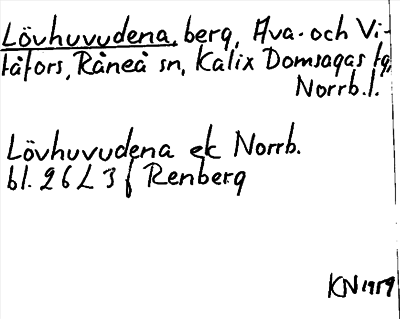 Lövhuvudena, berg, Ava- och Vi-
tåfors, Råneå sn, Kalix Domsagas tg,
Norrb. l.
Lövhuvudena ek Norrb.
bl. 26 L 3 f Renberg
KN 1959